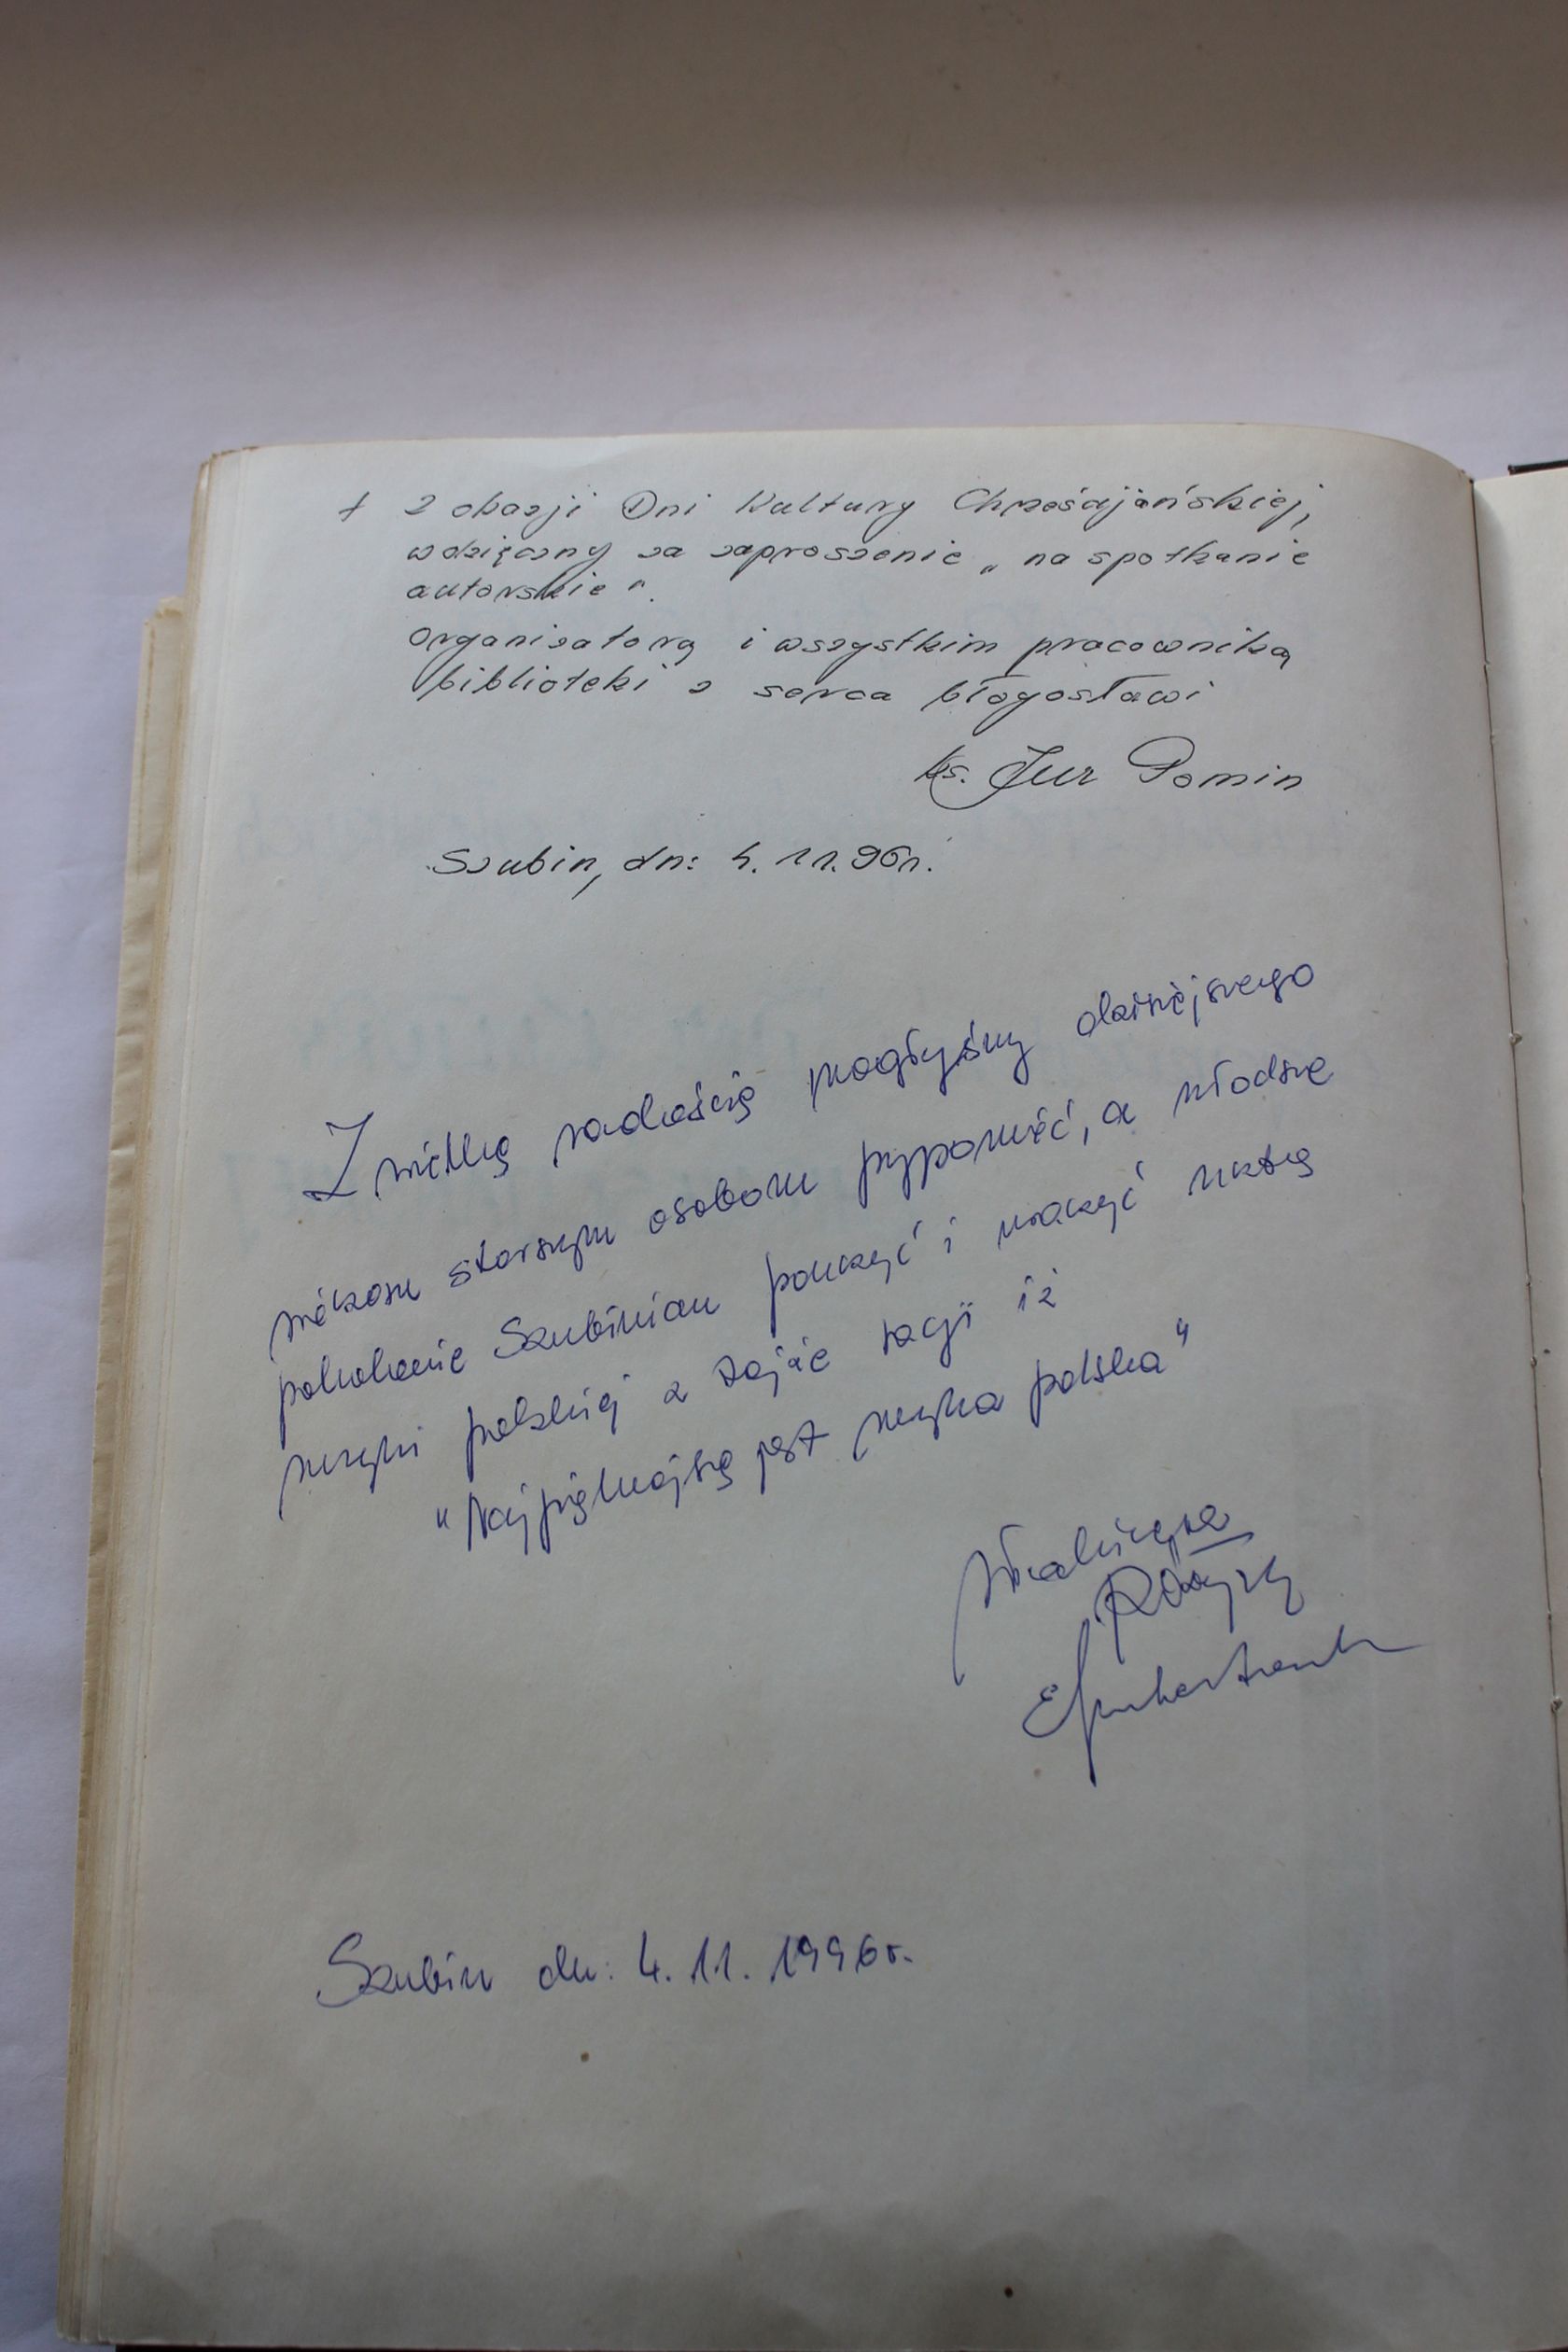 + Z okazji Dni Kultury Chrześcijańskiej,
wdzięczny za zaproszenie „na spotkanie
autorskie".
Organizatorą i wszystkim pracowniką
biblioteki z serca błogosławi
ks. Jur Pomin
Szubin, dn: 4. 11. 96r.
Z wielką radością mogłyśmy dzisiejszego
wieczoru starszym osobom przypomnieć, a młodsze
pokolenie Szubinian pouczyć i uraczyć nutą
muzyki polskiej z racji iż
"Najpiękniejszą jest muzyka polska"
Szubin dn: 4. 11. 1996r.